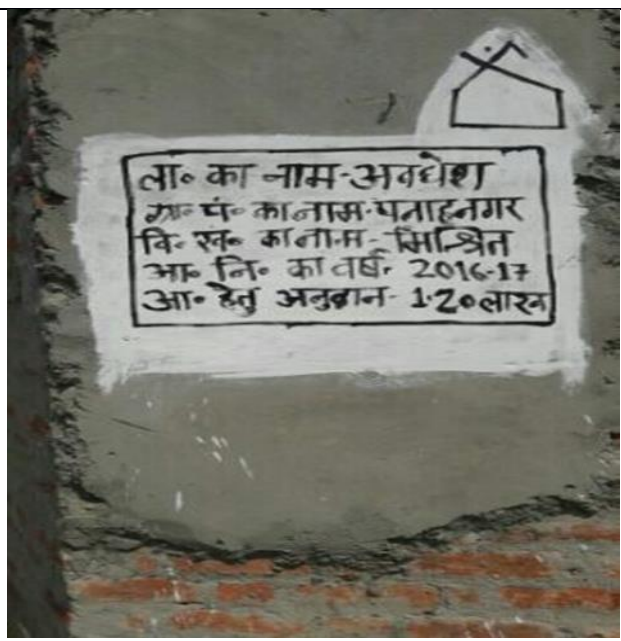 ला० का नाम-अवधेश
ग्रा० पं० का नाम-पनाहनगर
वि० ख० का नाम- मिश्रित
आ० नि० का वर्ष- 2016-17
आ० हेतु अनुदान- 1.20 लाख